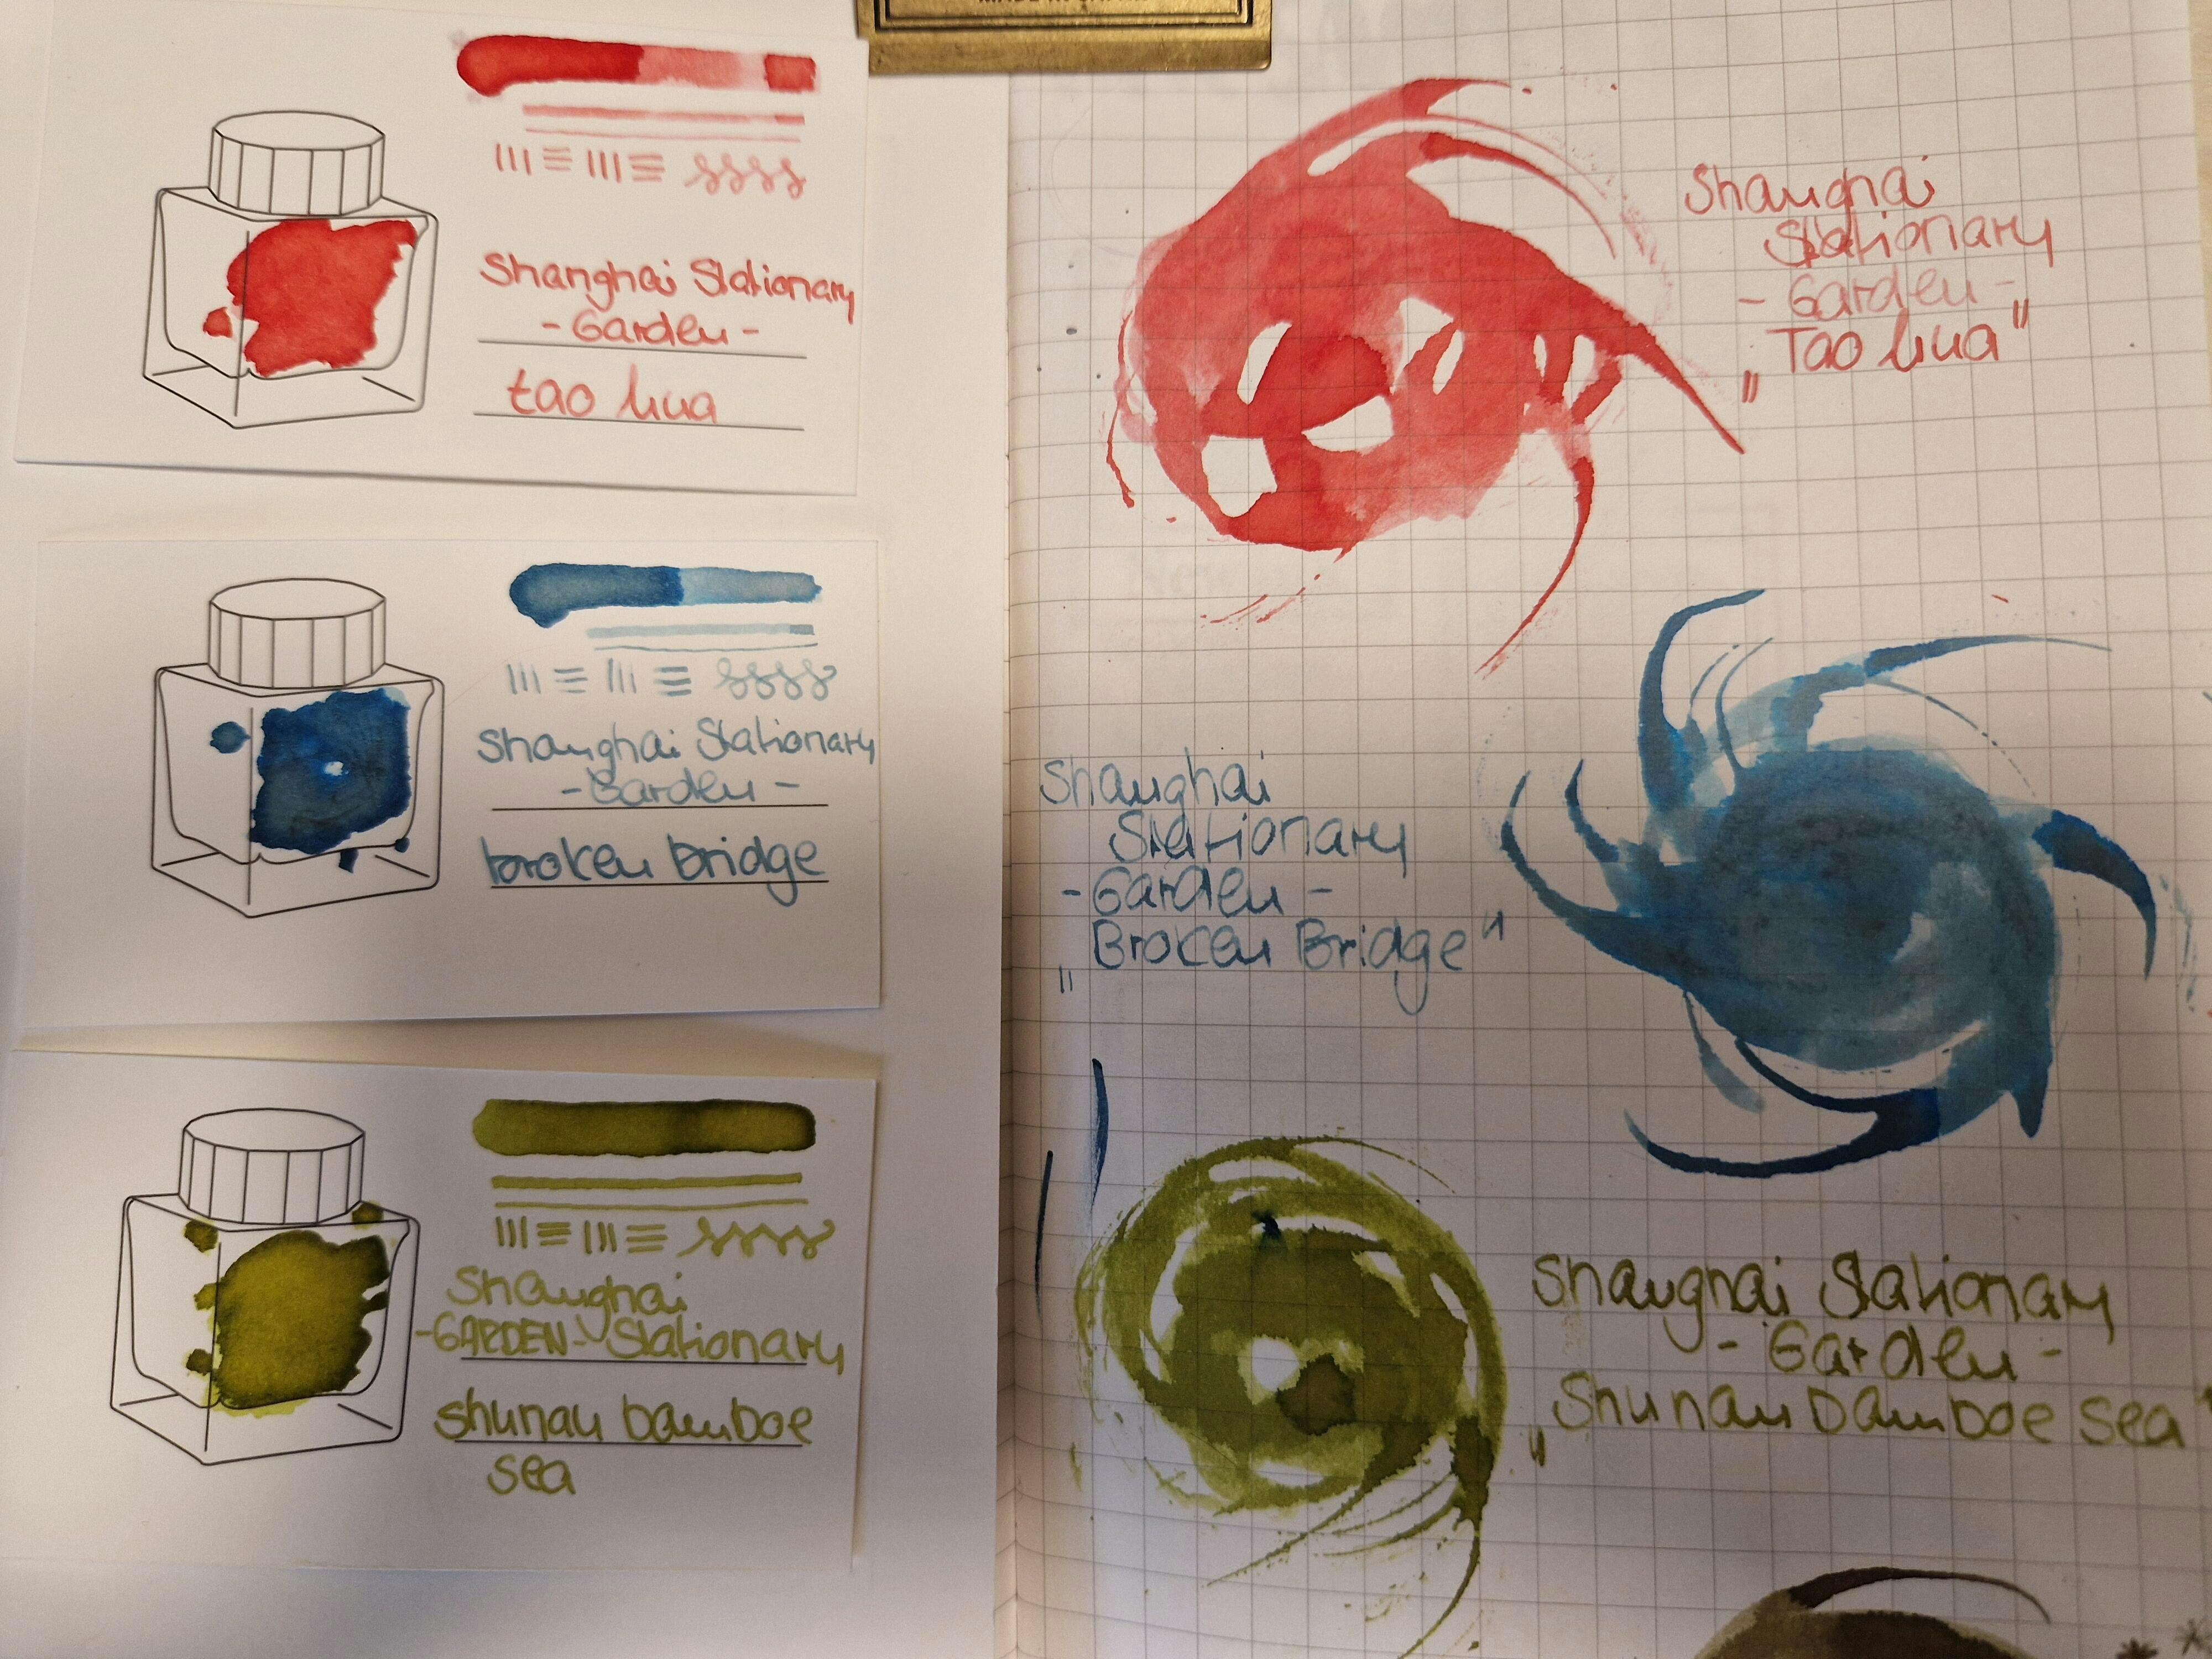 Shanghai Stationary
- Garden -
tao hua
Shanghai Stationary
- Garden -
broken bridge
Shanghai
-GARDEN- Stationary
shunan bamboe
sea
Shanghai
Stationary
- Garden -
„Tao hua"
Shanghai
Stationary
- Garden -
„Broken Bridge"
Shanghai Stationary
- Garden -
„Shunan Bamboe Sea"